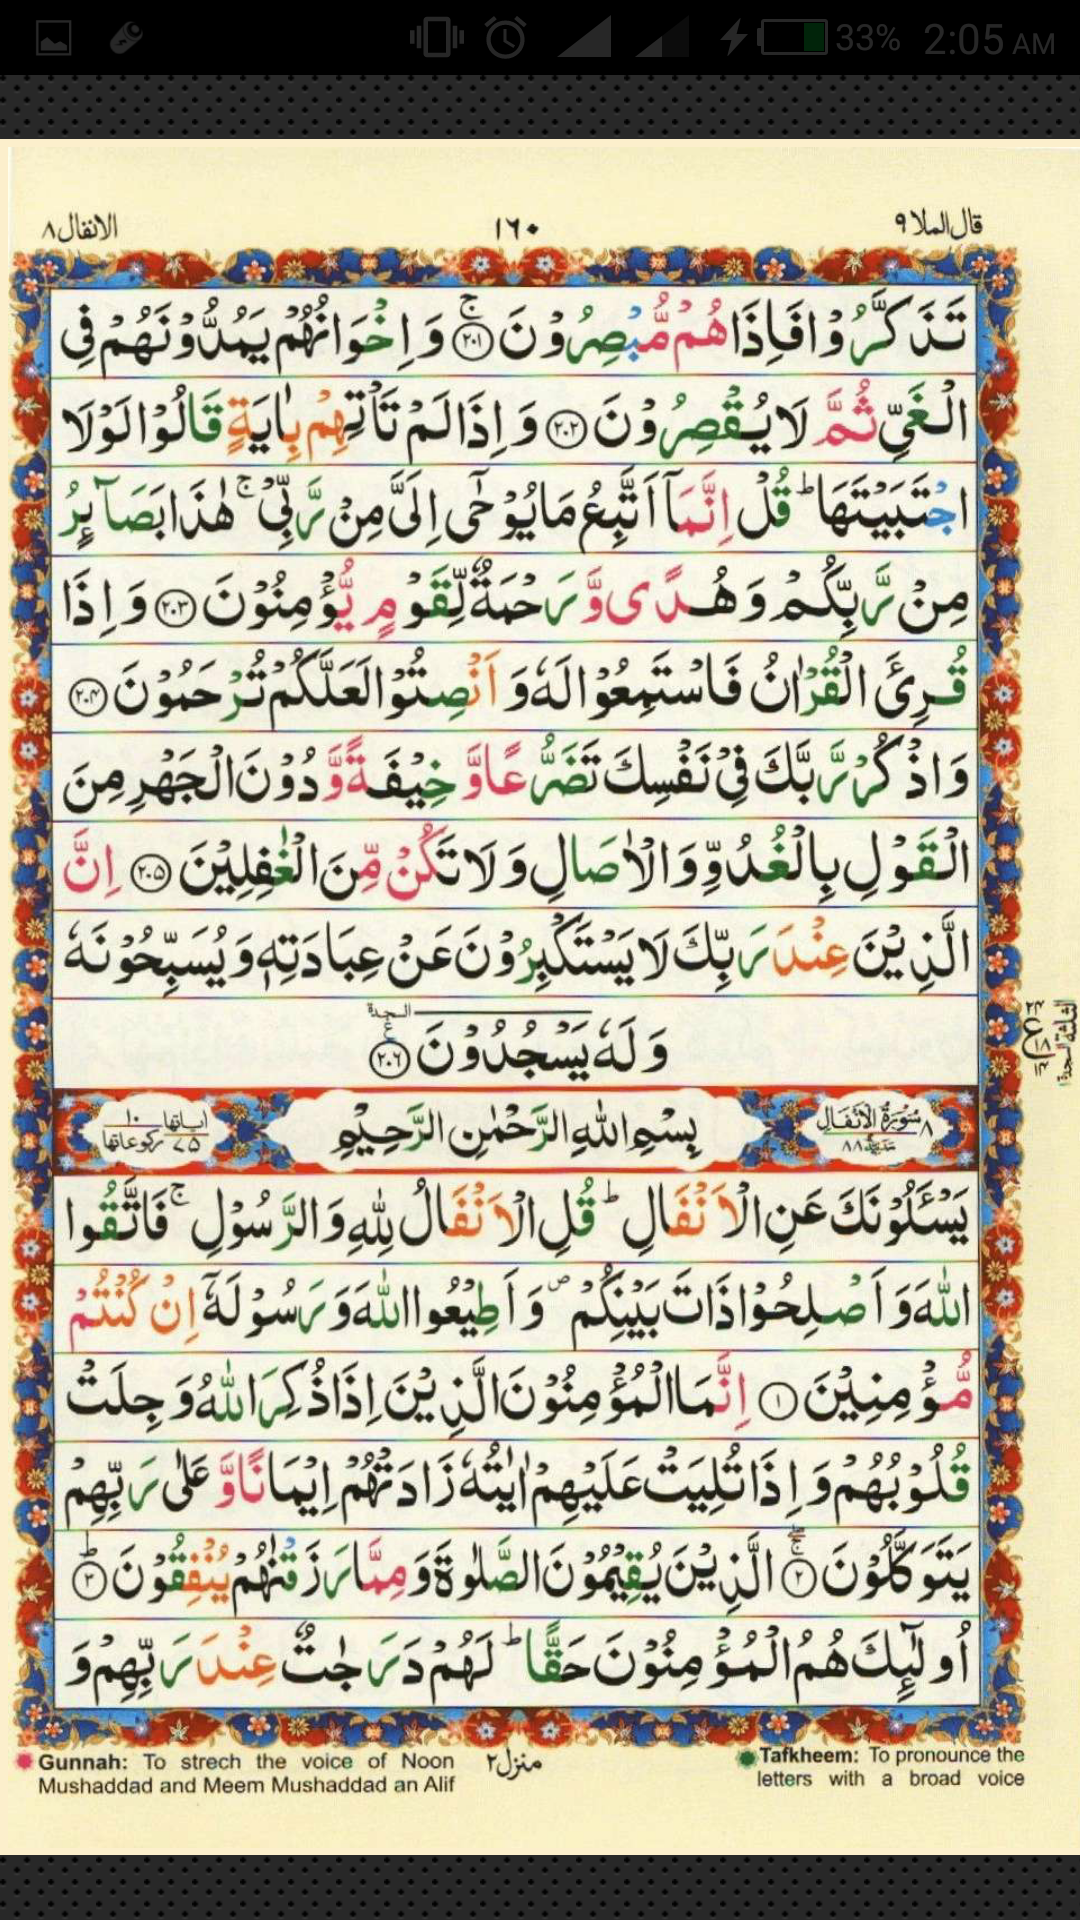 33% 2:05 AM
قال الملا ٩ ١٦٠ الانفال ٨
تَذَكَّرُوْا فَاِذَا هُمْ مُّبْصِرُوْنَ ۚ ﴿٢٠١﴾ وَ اِخْوَانُهُمْ يَمُدُّوْنَهُمْ فِى
الْغَىِّ ثُمَّ لَا يُقْصِرُوْنَ ﴿٢٠٢﴾ وَ اِذَا لَمْ تَاْتِهِمْ بِاٰيَةٍ قَالُوْا لَوْلَا
اجْتَبَيْتَهَا ؕ قُلْ اِنَّمَاۤ اَتَّبِعُ مَا يُوْحٰۤى اِلَىَّ مِنْ رَّبِّىْ ۚ هٰذَا بَصَآئِرُ
مِنْ رَّبِّكُمْ وَ هُدًى وَّ رَحْمَةٌ لِّقَوْمٍ يُّؤْمِنُوْنَ ﴿٢٠٣﴾ وَ اِذَا
قُرِئَ الْقُرْاٰنُ فَاسْتَمِعُوْا لَهٗ وَ اَنْصِتُوْا لَعَلَّكُمْ تُرْحَمُوْنَ ﴿٢٠٤﴾
وَ اذْكُرْ رَّبَّكَ فِىْ نَفْسِكَ تَضَرُّعًا وَّ خِيْفَةً وَّ دُوْنَ الْجَهْرِ مِنَ
الْقَوْلِ بِالْغُدُوِّ وَ الْاٰصَالِ وَ لَا تَكُنْ مِّنَ الْغٰفِلِيْنَ ﴿٢٠٥﴾ اِنَّ
الَّذِيْنَ عِنْدَ رَبِّكَ لَا يَسْتَكْبِرُوْنَ عَنْ عِبَادَتِهٖ وَ يُسَبِّحُوْنَهٗ
وَ لَهٗ يَسْجُدُوْنَ ﴿٢٠٦﴾ السجدة
٨ سُوْرَةُ الْاَنْفَالِ مَدَنِيَّة ٨٨ بِسْمِ اللّٰهِ الرَّحْمٰنِ الرَّحِيْمِ اٰياتها ٧٥ ركوعاتها ١٠
يَسْـَٔلُوْنَكَ عَنِ الْاَنْفَالِ ؕ قُلِ الْاَنْفَالُ لِلّٰهِ وَ الرَّسُوْلِ ۚ فَاتَّقُوا
اللّٰهَ وَ اَصْلِحُوْا ذَاتَ بَيْنِكُمْ ۪ وَ اَطِيْعُوا اللّٰهَ وَ رَسُوْلَهٗۤ اِنْ كُنْتُمْ
مُّؤْمِنِيْنَ ﴿١﴾ اِنَّمَا الْمُؤْمِنُوْنَ الَّذِيْنَ اِذَا ذُكِرَ اللّٰهُ وَ جِلَتْ
قُلُوْبُهُمْ وَ اِذَا تُلِيَتْ عَلَيْهِمْ اٰيٰتُهٗ زَادَتْهُمْ اِيْمَانًا وَّ عَلٰى رَبِّهِمْ
يَتَوَكَّلُوْنَ ۚ ﴿٢﴾ الَّذِيْنَ يُقِيْمُوْنَ الصَّلٰوةَ وَ مِمَّا رَزَقْنٰهُمْ يُنْفِقُوْنَ ؕ ﴿٣﴾
اُولٰٓئِكَ هُمُ الْمُؤْمِنُوْنَ حَقًّا ؕ لَهُمْ دَرَجٰتٌ عِنْدَ رَبِّهِمْ وَ
منزل ٢
Gunnah: To strech the voice of Noon
Mushaddad and Meem Mushaddad an Alif
Tafkheem: To pronounce the
letters with a broad voice